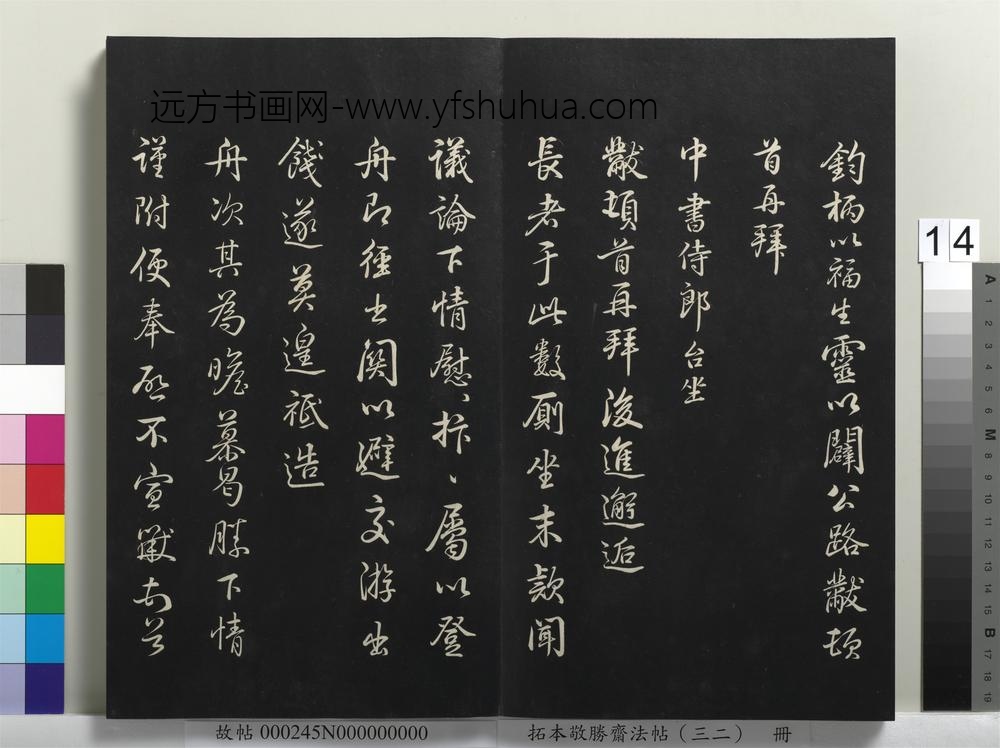 远方书画网-www.yfshuhua.com
鈞柄以福生靈以闢公路黻頓
首再拜
中書侍郎台坐
黻頓首再拜後進邂逅
長者于此數厠坐末款聞
議論下情慰、抃、屬以登
舟即徑出関以避交游出
餞遂莫遑祗造
舟次其為瞻慕曷勝下情
謹附便奉啟不宣黻頓首
14
故帖 000245N000000000
拓本敬勝齋法帖（三二） 冊
A 1 2 3 4 5 6 M 8 9 10 11 12 13 14 15 B 17 18 19